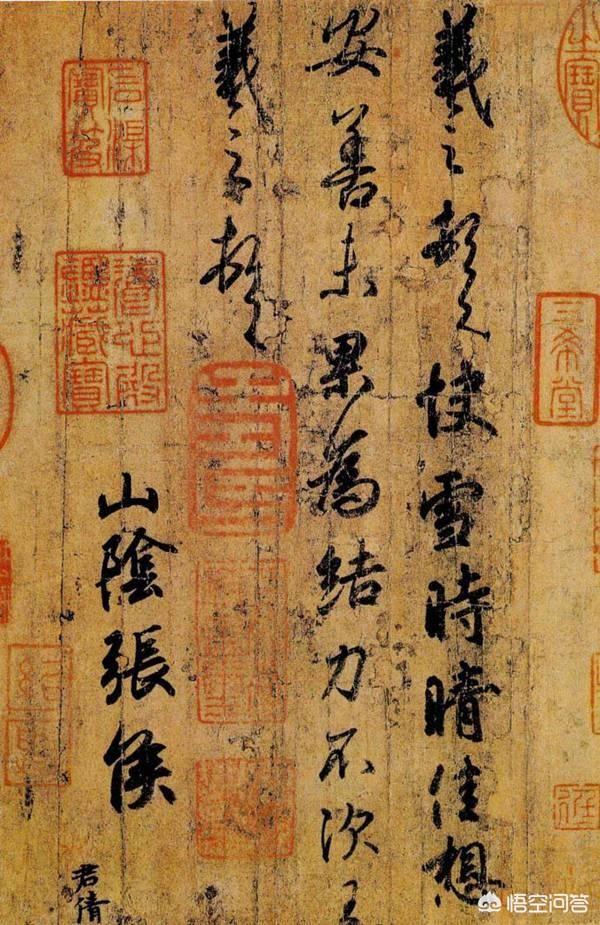 羲之頓首快雪時晴佳想
安善未果為結力不次王
羲之頓首
山陰張侯
君倩
三希堂
悟空问答